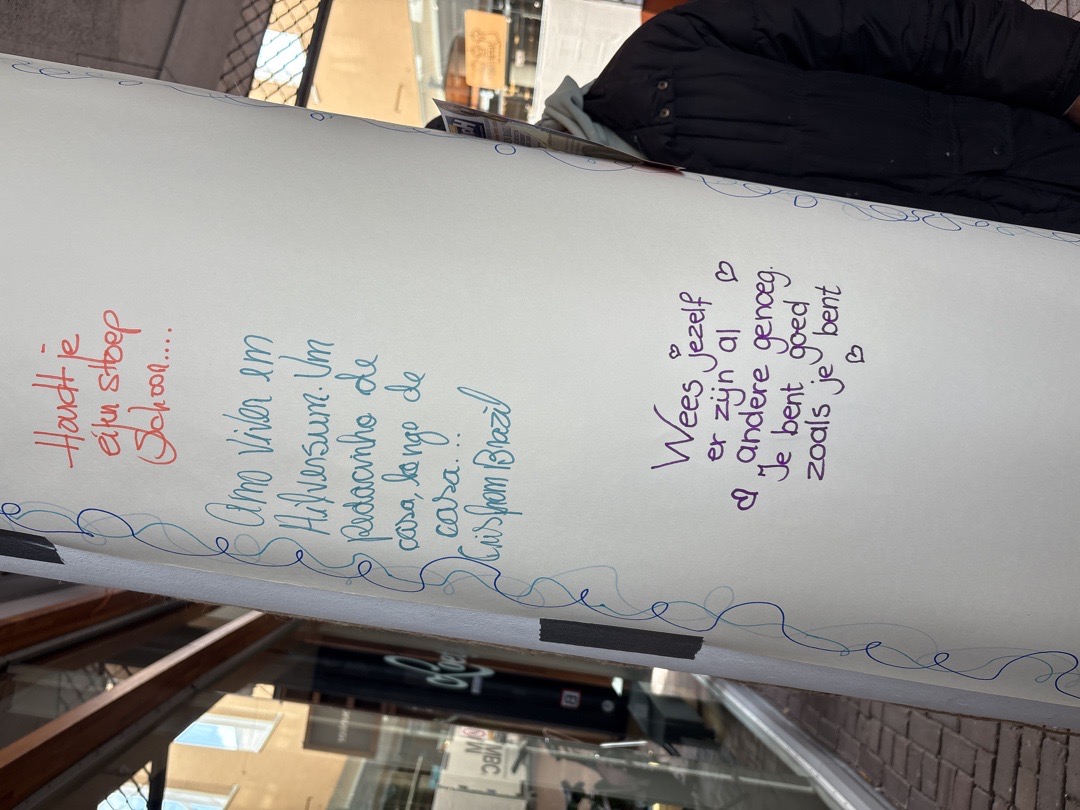 Houdt je
eijn stoep
Schoon....
Amo viver em
Hilversum. Um
pedacinho de
casa, longe de
casa...
Cris from Brazil
Wees jezelf
er zijn al
andere genoeg.
Je bent goed
zoals je bent